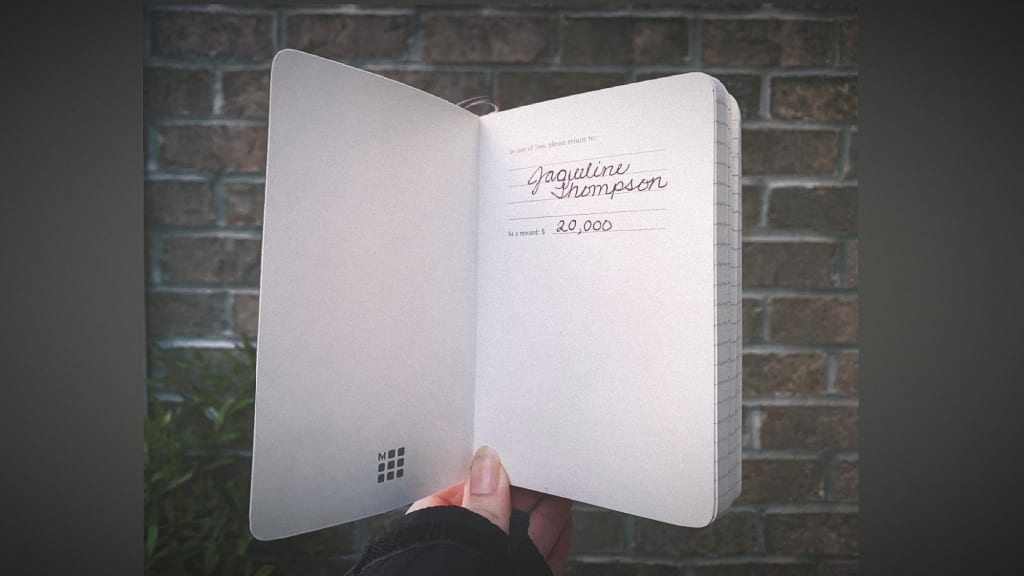 In case of loss, please return to:
Jaqueline
Thompson
As a reward: $ 20,000
M